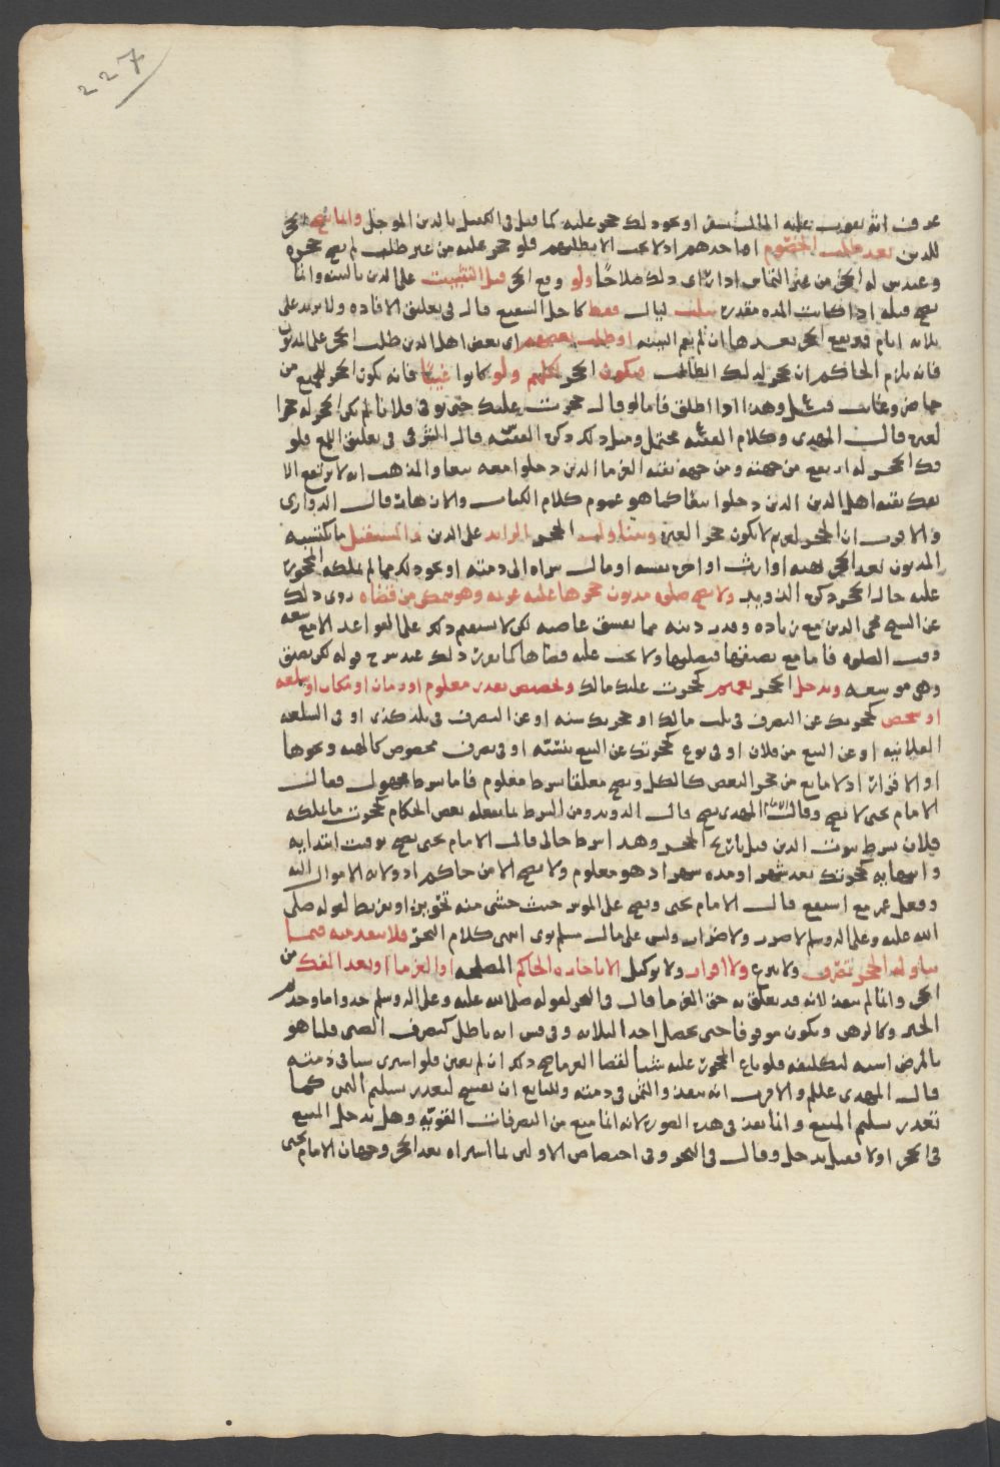 227
عرف انه يفوت عليه المال بسفر او نحو ذلك حجر عليه كما قيل في الكفيل بالدين الموجل وانما يصح الحجر
للدين بعد طلب الخصوم او احدهم اذ لا يجب الا بطلبهم فلو حجر عليه من غير طلب لم يصح حجره
وعند س له الحجر من غير التماس اذا راى ذلك صلاحًا ولو وقع الحجر قبل التثبيت على الدين بالبينه وانما
يصح قبله اذا كانت المده مقدره بثلث ليال فقط كاجل الشفيع قال في تعليق الافاده ولا يزيد على
ثلاثه ايام فيرتفع الحجر بعدها ان لم يقم البينه او طلب بعضهم اي بعض اهل الدين طلب الحجر على المديون
فانه يلزم الحاكم ان يحجر لذلك الطالب فيكون الحجر لكلهم ولو كانوا غيبًا فانه يكون الحجر للجميع من
حاضر وغايب وهذا اذا اطلق فاما لو قال حجرت عليك حتى توفي فلانا لم يكن الحجر له حجرا
لغيره قال المهدي وكلام الفقيه محتمل ومثل ذلك ذكره الفقيه قال النجري في تعليق اللمع فلو
فك الحجر له ارتفع من جهته ومن جهة بقية الغرما الذين دخلوا معه تبعا والمذهب انه لا يرتفع الا
بفك بقية اهل الدين الذين دخلوا تبعًا كما هو عموم كلام الكتاب والازهار قال الدواري
والاقرب ان الحجر لغريم لا يكون حجرا لغيره ويتناول الحجر الزايد على الدين والمستقبل ما يكتسبه
المديون بعد الحجر بهبه او ارث او اجره نفسه او مال شراه الى ذمته او نحو ذلك مما لم يملكه المحجور
عليه حال الحجر ذكره الدويد ولا يصح صلوه مديون حجر ماعليه غريمه وهو متمكن من قضاه روى ذلك
عن الشيخ محي الدين مع زياده وقدر دينه مما يفسق غاصبه لكن لا يستقيم ذلك على القواعد الا مع سعه
وقت الصلوه فاما مع تضيقها فيصليها ولا يجب عليه قضاها كما تقرر ذلك عند شرح قوله لكن يضيق
وهي موسعه ويدخل الحجر تعميم كحجرت عليك مالك وتخصيص بقدر معلوم او زمان او مكان او سلعه
او شخص كحجرتك عن التصرف في ثلث مالك او حجرتك سنه او عن التصرف في بلد كذى او في السلعه
الفلانيه او عن البيع من فلان او في نوع كحجرتك عن البيع بنسيه او في تصرف مخصوص كالهبه ونحوها
او الاقرار اذ لا مانع من حجر البعض كالكل ويصح معلقا بشرط معلوم فاما بشرط مجهول فقال
الامام يحيى لا يصح وقال الامام المهدي يصح قال الدويد ومن الشرط ما يفعله بعض الحكام كحجرت ما يملكه
فلان بشرط ثبوت الدين قبل تاريخ الحجر وهذا شرط حالي قال الامام يحيى يصح توقيت ابتدايه
وانتهايه كحجرتك بعد شهر او مده شهر اذ هو معلوم ولا يصح الا من حاكم اذ ولايه الاموال اليه
وفعل عمر مع اسيفع قال الامام يحيى ويصح على الموسر حيث خشي منه تخوين او تفريط لقوله صلى
الله عليه وعلى اله وسلم لا ضرر ولا ضرار وليس على مال مسلم توى انتهى كلام البحر فلا ينفد منه فيما
تناوله الحجر تصرف ولا تبرع ولا اقرار ولا توكيل الا باجازه الحاكم لمصلحه او الغرما او بعد الفك من
الحجر وانما لم ينفذ لانه قد تعلق به حق الغرما قال في البحر لقوله صلى الله عليه وعلى اله وسلم خذوا ما وجدتم
الخبر وكالرهن ويكون موقوفا حتى يحصل احد الثلاثه وفي قس انه باطل كتصرف الصبي قلنا هو
بالمريض اشبه لتكليفه فلو باع المحجور عليه شيا لقضا الغرما صح ذلك ان لم يغبن فلو اشترى شيا في ذمته
قال المهدي عليلم والاقرب انه ينفذ والثمن في ذمته وللبايع ان يفسخ لتعذر تسليم الثمن كما
تعذر تسليم المبيع وانما نفذ في هذه الصوره لانه انما منع من التصرفات القويه وهل يدخل المبيع
في الحجر او لا فقيل يدخل وقال في البحر وفي اختصاص الاولين بما اشتراه بعد الحجر وجهان الامام يحيى